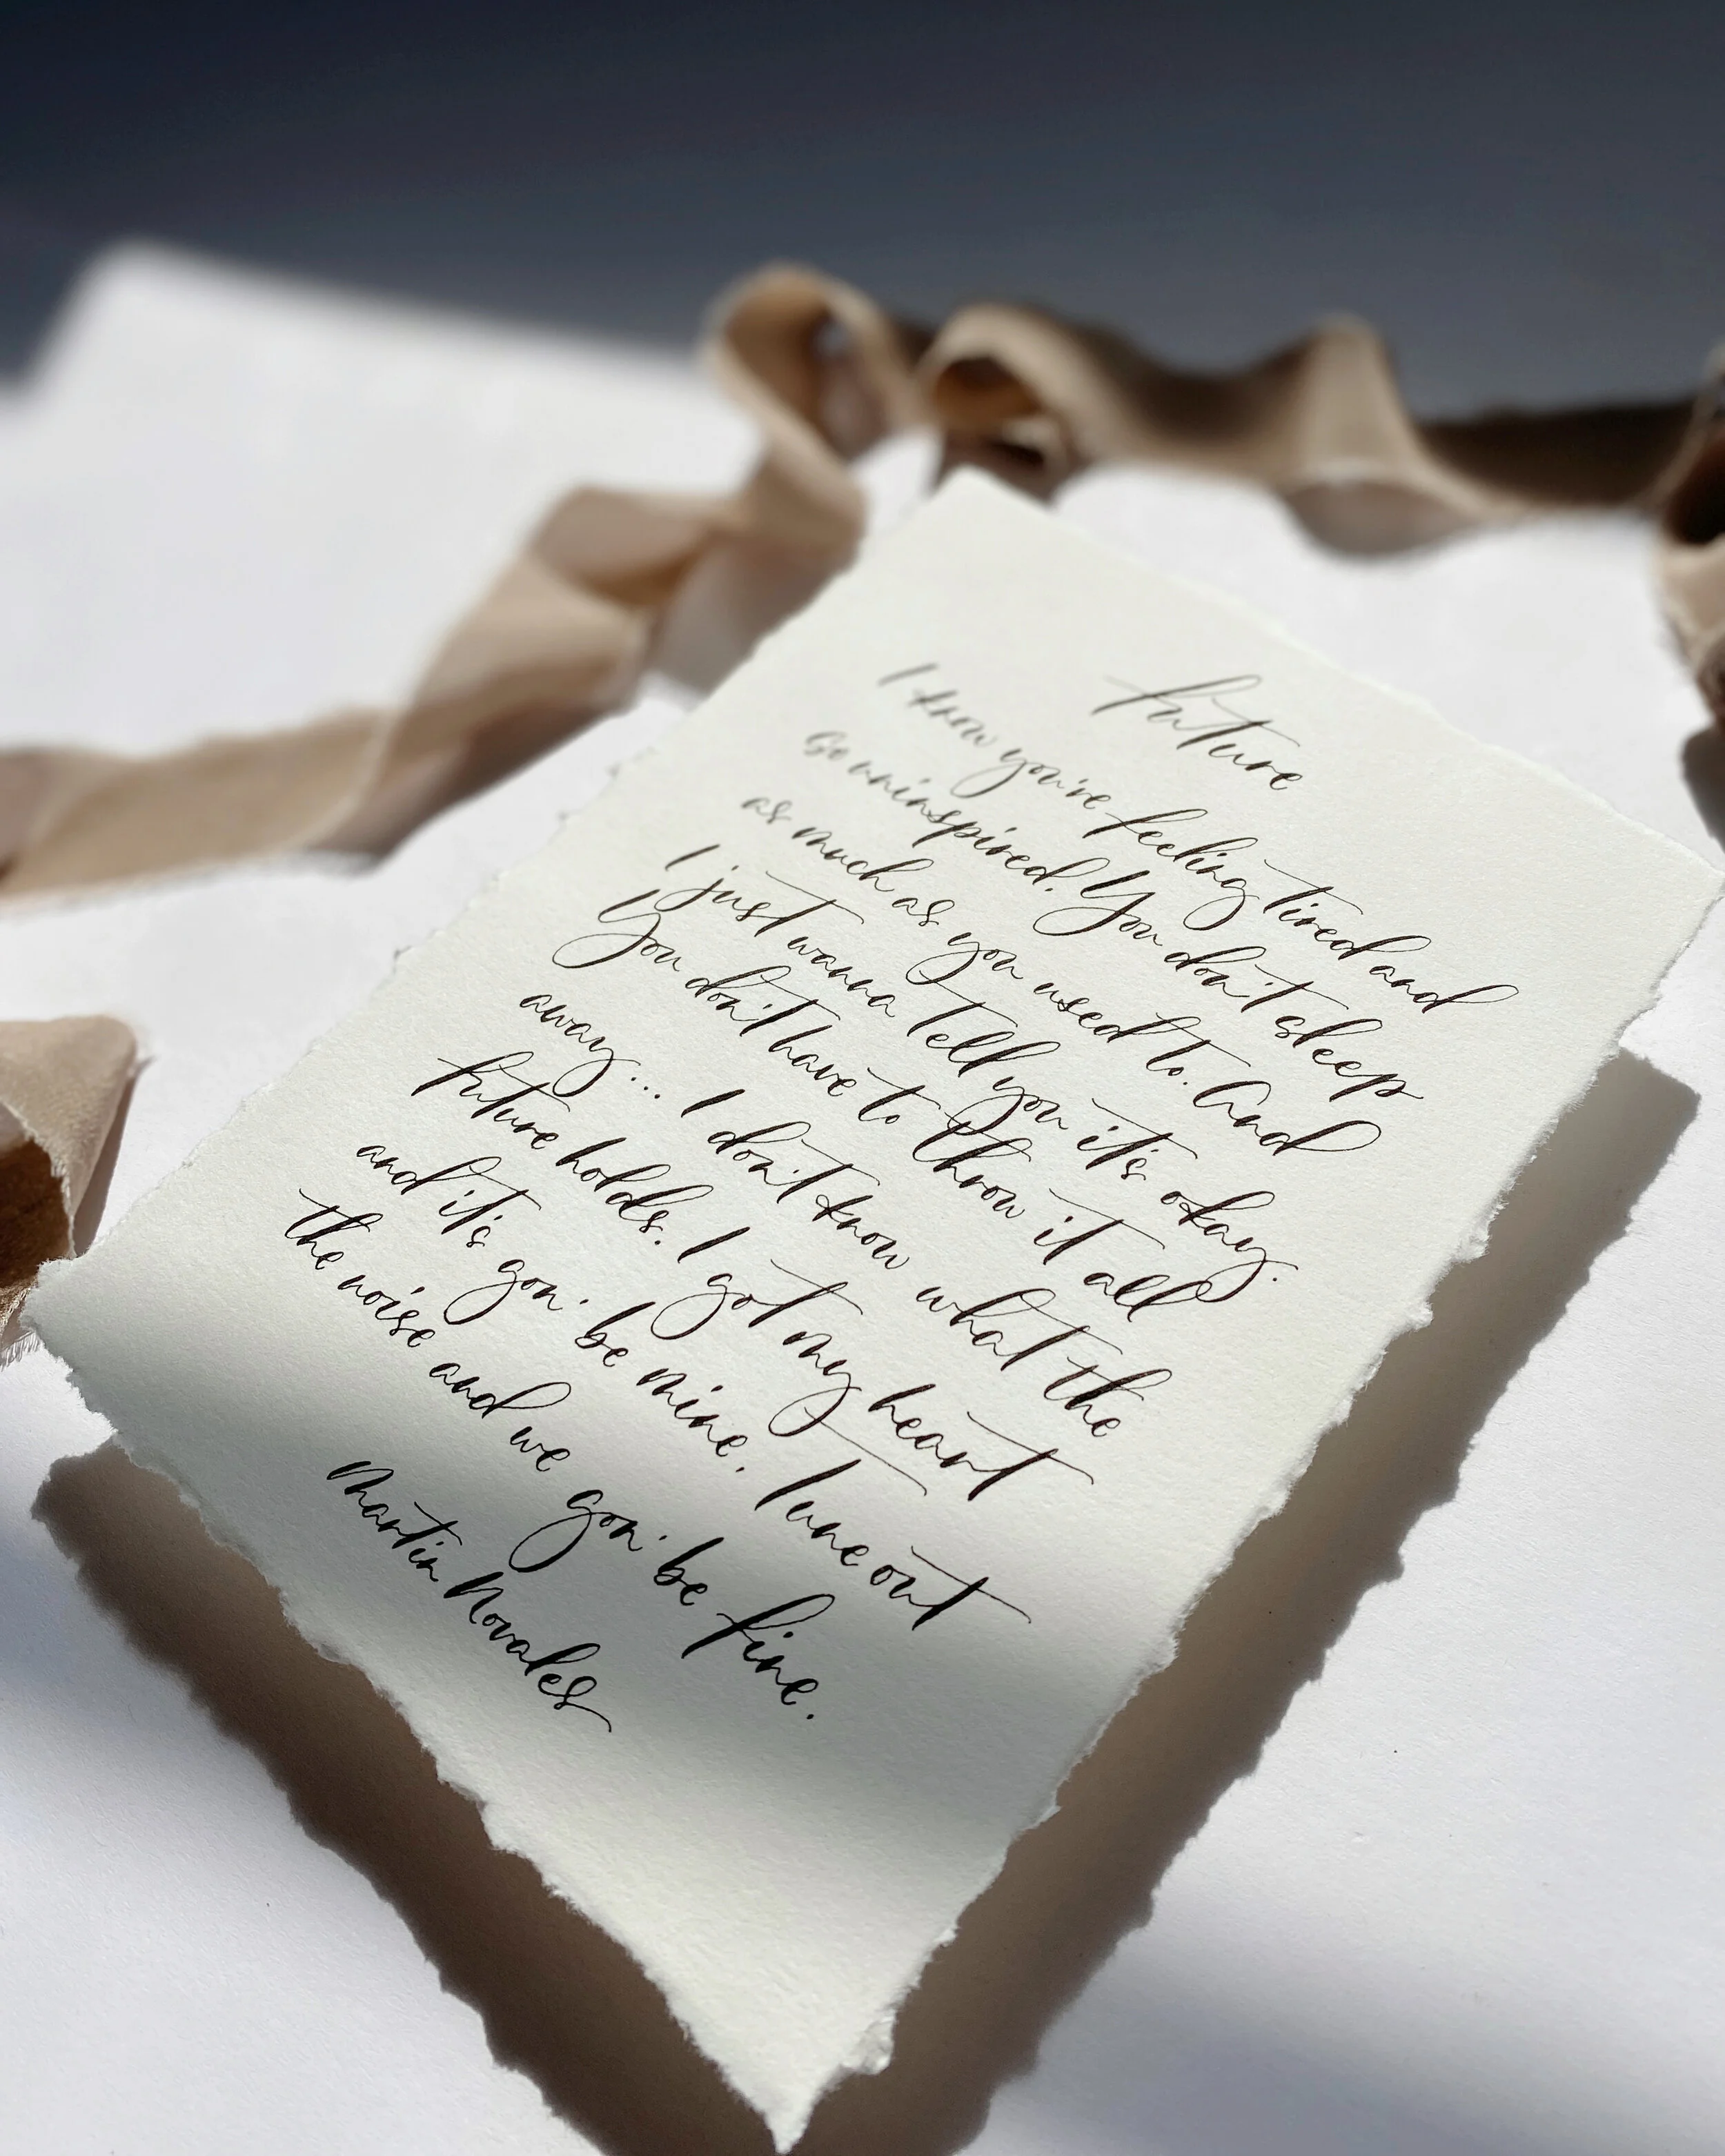 future
I know you're feeling tired and
so uninspired. You don't sleep
as much as you used to. And
I just wanna tell you it's okay.
You don't have to throw it all
away... I don't know what the
future holds. I got my heart
and it's gon' be mine. Tune out
the noise and we gon' be fine.
Martin Novales